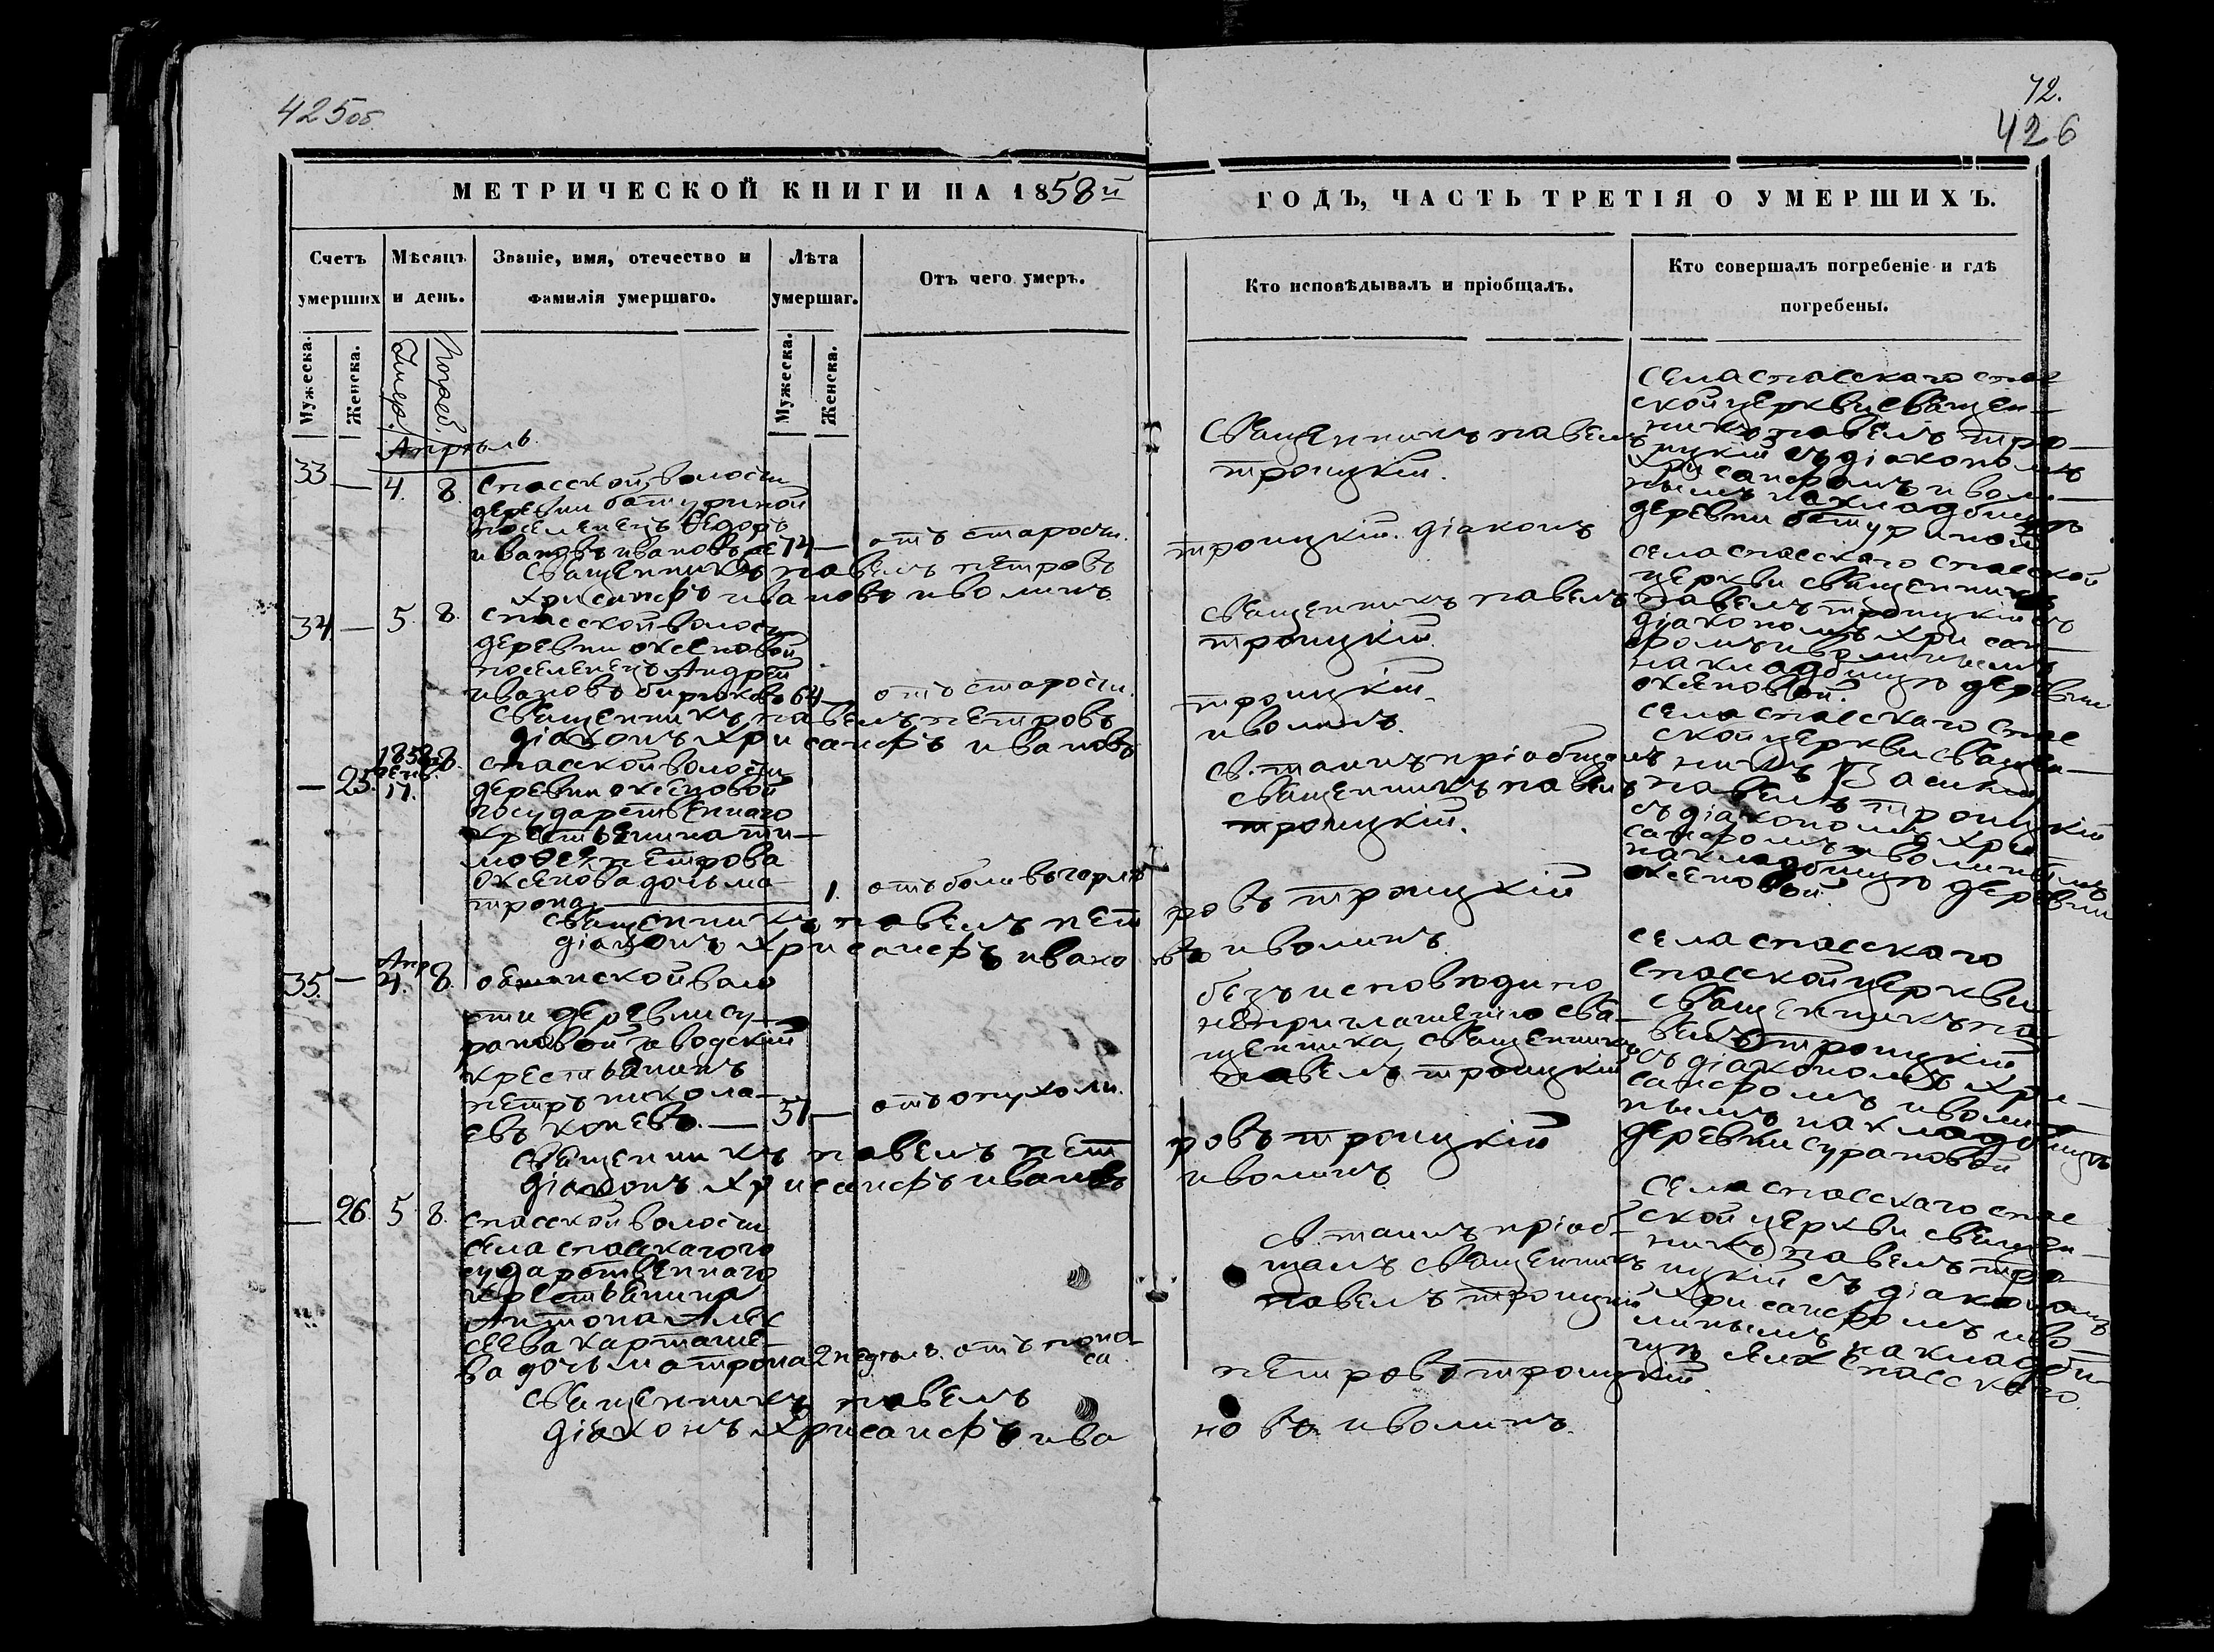 425об.
72.
426
МЕТРИЧЕСКОЙ КНИГИ НА 1858й
ГОДЪ, ЧАСТЬ ТРЕТІЯ О УМЕРШИХЪ.
Счетъ умерших
Мѣсяцъ и день.
Званіе, имя, отечество и фамилія умершаго.
Лѣта умершаг.
Отъ чего умеръ.
Кто исповѣдывалъ и пріобщалъ.
Кто совершалъ погребеніе и гдѣ погребены.
Мужеска.
Женска.
Умер.
Погреб.
Мужеска.
Женска.
Апрѣль.
33 — 4. 8. Спасской волости
деревни батуриной
поселенецъ Ѳедоръ
ивановъ ивановъ 74 — отъ старости.
Священникъ павелъ
троицкій.
села спасскаго спас
ской церкви священ-
никъ павелъ тро-
ицкій съ діакономъ
хрисанфомъ иволи-
нымъ на кладбищѣ
деревни батуриной
священникъ павелъ петровъ троицкій. діаконъ
хрисанфъ ивановъ иволинъ
34 — 5. 8. спасской волости
деревни оксеновой
поселенецъ Андрей
ивановъ бирюковъ 64 — отъ старости.
священникъ павелъ
троицкій.
села спасскаго спасской
церкви священникъ
павелъ троицкій съ
діакономъ хрисан-
фомъ иволинымъ
на кладбищѣ деревни
оксеновой.
священникъ павелъ петровъ троицкій.
діаконъ хрисанфъ ивановъ иволинъ.
— 25. 1858
17. 8. спасской волости
деревни оксеновой
государственнаго
крестьянина ти-
моѳея петрова
оксенова дочь ма-
трона 1. отъ боли въ горлѣ
св. таинъ пріобщалъ
священникъ павелъ
троицкій.
села спасскаго спас
ской церкви священ-
никъ
павелъ троицкій
съ діакономъ хри
санфомъ иволинымъ
на кладбищѣ деревни
оксеновой.
священникъ павелъ петровъ троицкій
діаконъ хрисанфъ ивановъ иволинъ
35. — Апр. 4. 8. воло
сти деревни су-
рановой заводскій
крестьянинъ
петръ никола-
евъ коневъ. — 57 — отъ опухоли.
безъ исповѣди по
неприглашенію свя-
щенника, священникъ
павелъ троицкій
села спасскаго
спасской церкви
священникъ па-
велъ троицкій
съ діакономъ хри-
санфомъ иволи-
нымъ на кладбищѣ
деревни сурановой
священникъ павелъ петровъ троицкій
діаконъ хрисанфъ ивановъ иволинъ
— 26. 5. 8. спасской волости
села спасскаго го
сударственнаго
крестьянина
Антона Алек
сеева карташе-
ва дочь матрона 2 недѣль. отъ поно-
са.
св. таинъ пріоб-
щалъ священникъ
павелъ троицкій
села спасскаго спас
ской церкви священ-
никъ павелъ тро-
ицкій съ діакономъ
хрисанфомъ иво-
линымъ на кладби-
щѣ села спасскаго.
священникъ павелъ петровъ троицкій
діаконъ хрисанфъ ивановъ иволинъ.